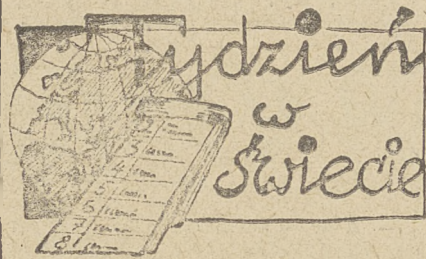 Tydzień
w
świecie
2
3
4
5
5
7
8